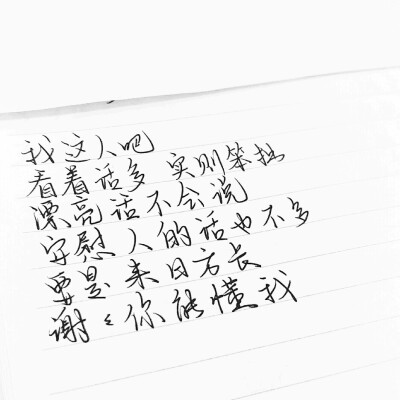 我这人吧
看着话多 实则笨拙
漂亮话不会说
安慰人的话也不多
要是来日方长
谢谢你能懂我